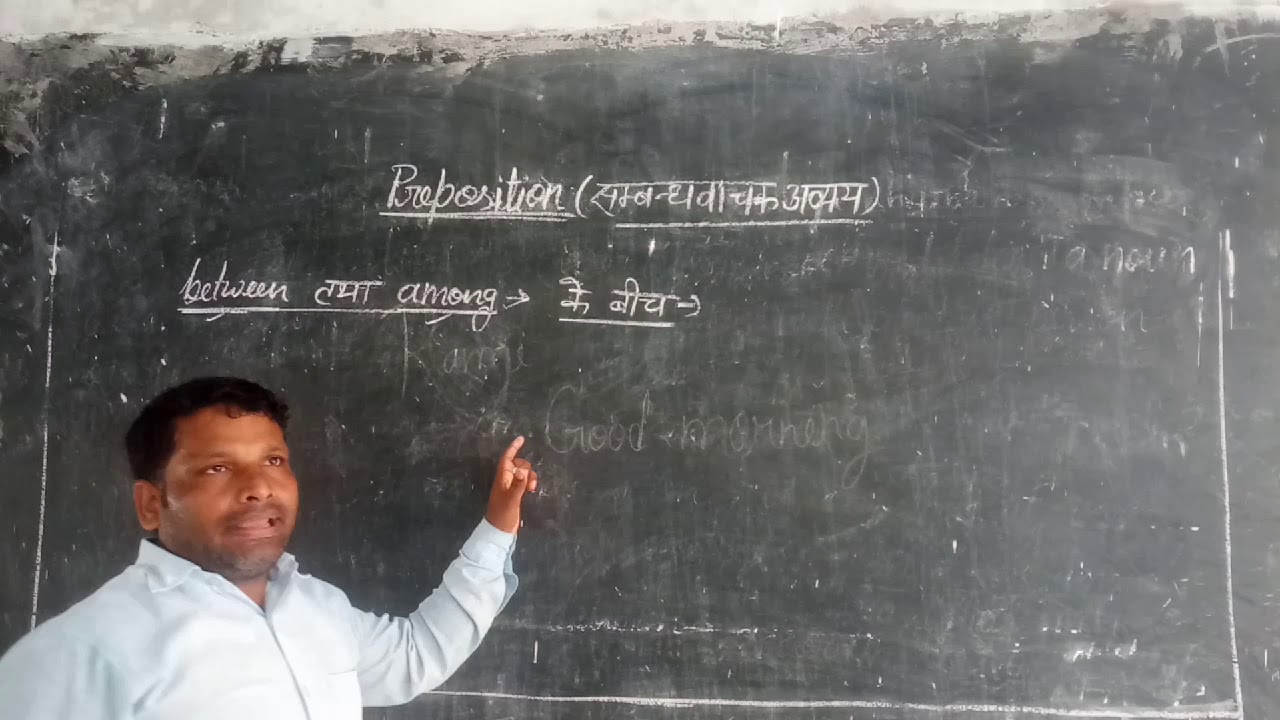 Preposition (सम्बन्धवाचक अव्यय)
a noun
between तथा among → के बीच →
Good morning